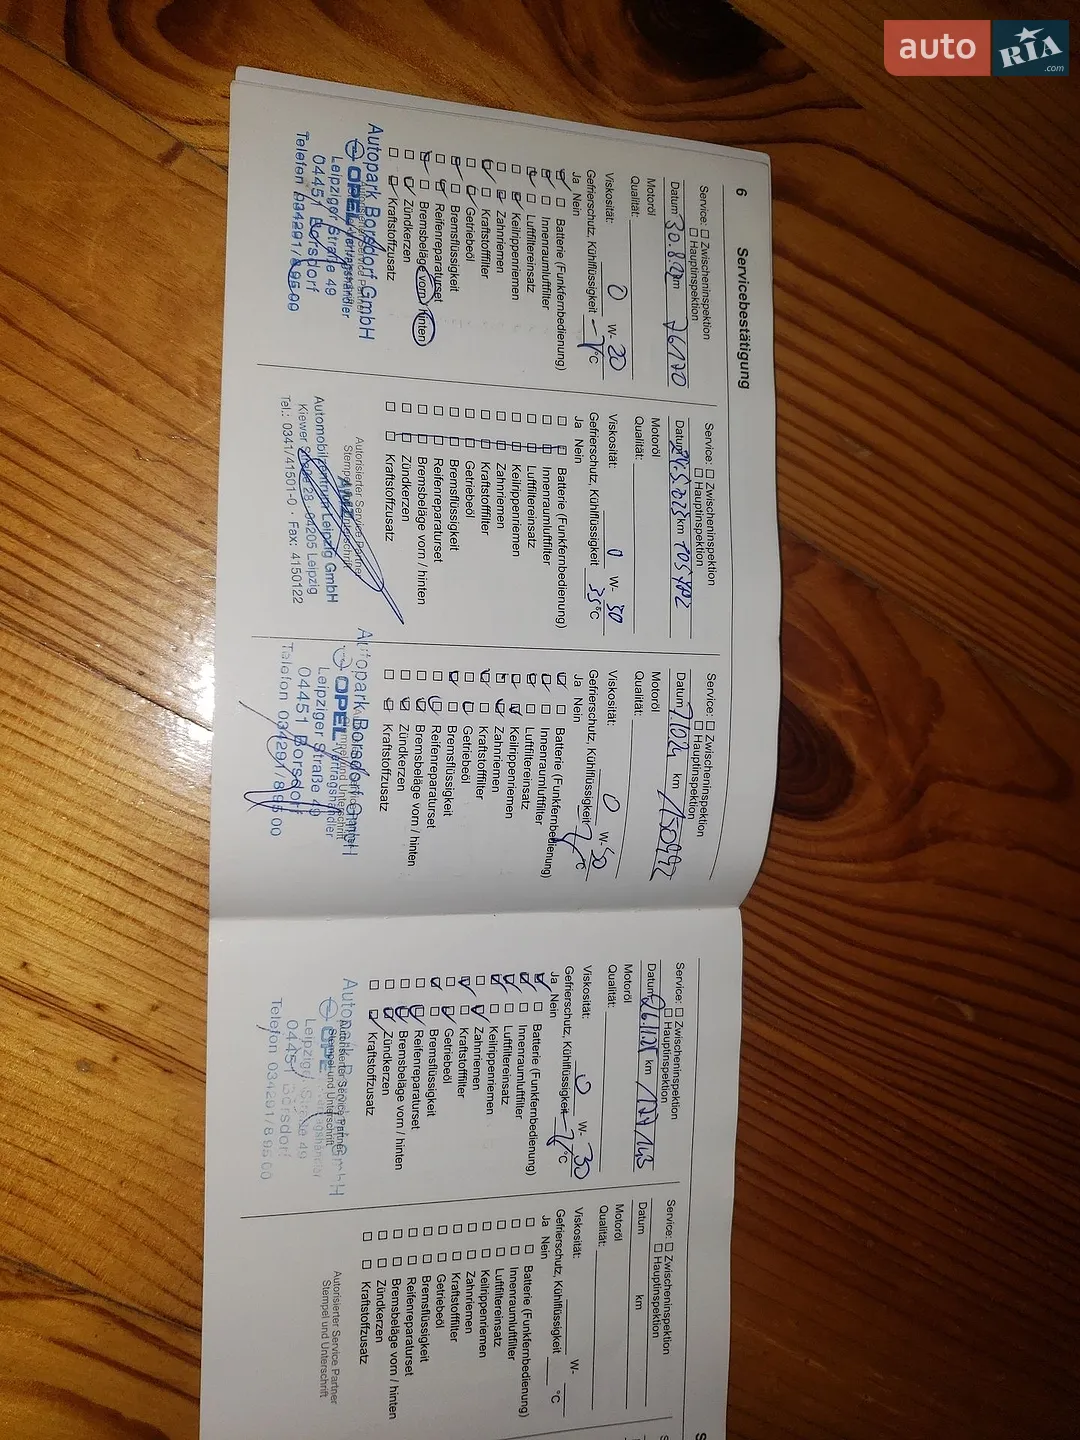 auto RIA.com
6 Servicebestätigung
Service: □ Zwischeninspektion
□ Hauptinspektion
Datum 30.8. km 76170
Motoröl
Qualität:
Viskosität: 0 W- 20
Gefrierschutz, Kühlflüssigkeit °C
Ja Nein
Batterie (Funkfernbedienung)
Innenraumluftfilter
Luftfiltereinsatz
Keilrippenriemen
Zahnriemen
Kraftstofffilter
Getriebeöl
Bremsflüssigkeit
Reifenreparaturset
Bremsbeläge vorn / hinten
Zündkerzen
Kraftstoffzusatz
Autopark Borsdorf GmbH
OPEL-Vertragshändler
Leipziger Straße 49
04451 Borsdorf
Telefon 034291/8 95 00
Service: □ Zwischeninspektion
□ Hauptinspektion
Datum km
Motoröl
Qualität:
Viskosität: 0 W- 30
Gefrierschutz, Kühlflüssigkeit 35 °C
Ja Nein
Batterie (Funkfernbedienung)
Innenraumluftfilter
Luftfiltereinsatz
Keilrippenriemen
Zahnriemen
Kraftstofffilter
Getriebeöl
Bremsflüssigkeit
Reifenreparaturset
Bremsbeläge vorn / hinten
Zündkerzen
Kraftstoffzusatz
Autorisierter Service Partner
Stempel und Unterschrift
Automobilzentrum Leipzig GmbH
Kiewer Straße 28 · 04205 Leipzig
Tel.: 0341/41501-0 · Fax: 4150122
Service: □ Zwischeninspektion
□ Hauptinspektion
Datum km
Motoröl
Qualität:
Viskosität: 0 W- 30
Gefrierschutz, Kühlflüssigkeit °C
Ja Nein
Batterie (Funkfernbedienung)
Innenraumluftfilter
Luftfiltereinsatz
Keilrippenriemen
Zahnriemen
Kraftstofffilter
Getriebeöl
Bremsflüssigkeit
Reifenreparaturset
Bremsbeläge vorn / hinten
Zündkerzen
Kraftstoffzusatz
Autopark Borsdorf GmbH
OPEL Vertragshändler
Leipziger Straße 49
04451 Borsdorf
Telefon 034291/8 95 00
Service: □ Zwischeninspektion
□ Hauptinspektion
Datum km 177143
Motoröl
Qualität:
Viskosität: 0 W- 30
Gefrierschutz, Kühlflüssigkeit °C
Ja Nein
Batterie (Funkfernbedienung)
Innenraumluftfilter
Luftfiltereinsatz
Keilrippenriemen
Zahnriemen
Kraftstofffilter
Getriebeöl
Bremsflüssigkeit
Reifenreparaturset
Bremsbeläge vorn / hinten
Zündkerzen
Kraftstoffzusatz
Autorisierter Service Partner
Stempel und Unterschrift
Leipziger Straße 49
04451 Borsdorf
Telefon 034291/8 95 00
Service: □ Zwischeninspektion
□ Hauptinspektion
Datum km
Motoröl
Qualität:
Viskosität: W-
Gefrierschutz, Kühlflüssigkeit °C
Ja Nein
Batterie (Funkfernbedienung)
Innenraumluftfilter
Luftfiltereinsatz
Keilrippenriemen
Zahnriemen
Kraftstofffilter
Getriebeöl
Bremsflüssigkeit
Reifenreparaturset
Bremsbeläge vorn / hinten
Zündkerzen
Kraftstoffzusatz
Autorisierter Service Partner
Stempel und Unterschrift